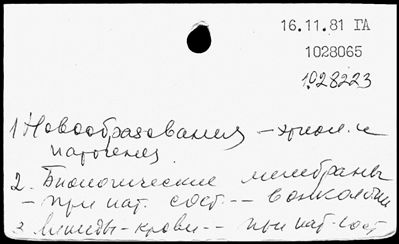 16.11.81 ГА
1028065
1028223
1 Новообразования - этиол. и
патогенез
2. Биологические мембраны
- при пат. сост. -- в онкологии
3. Липиды - крови -- при пат. сост.